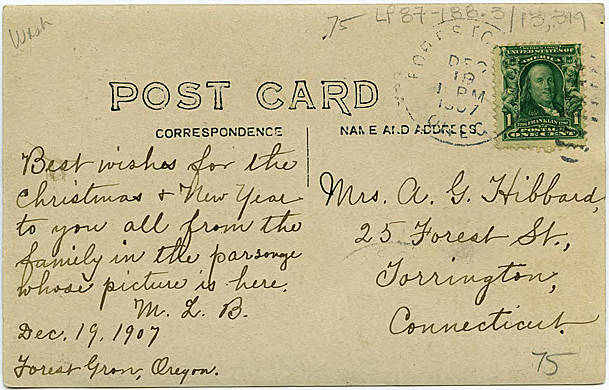 Wash
.75 LP87-188.3/13,319
FOREST GRO
DEC
18
1 PM
1907
OREG.
UNITED STATES OF
AMERICA
1 1
FRANKLIN
POSTAGE
ONE CENT
POST CARD
CORRESPONDENCE NAME AND ADDRESS.
Best wishes for the
Christmas & New Year
to you all from the
family in the parsonge
whose picture is here.
M. L. B.
Dec. 19, 1907
Forest Grov, Oregon.
Mrs. A. G. Hibbard,
25 Forest St.,
Torrington,
Connecticut.
75